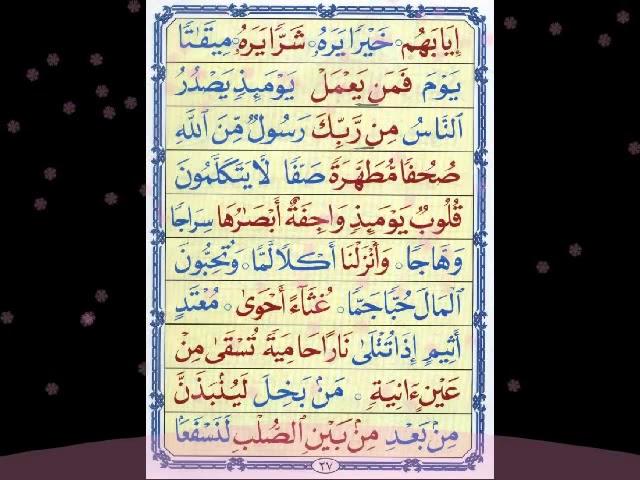 إِيَابَهُم ۰ خَيْرًا يَرَهُ ۰ شَرًّا يَرَهُ ۰ مِيقَٰتًا
يَوْمَ فَمَن يَعْمَلْ يَوْمَئِذٍ يَصْدُرُ
النَّاسُ مِن رَّبِّكَ رَسُولٌ مِّنَ اللَّهِ
صُحُفًا مُّطَهَّرَةً صَفًّا لَّا يَتَكَلَّمُونَ
قُلُوبٌ يَوْمَئِذٍ وَاجِفَةٌ أَبْصَٰرُهَا سِرَاجًا
وَهَّاجًا ۰ وَأَنزَلْنَا أَكْلًا لَّمًّا ۰ وَتُحِبُّونَ
الْمَالَ حُبًّا جَمًّا ۰ غُثَاءً أَحْوَىٰ ۰ مُعْتَدٍ
أَثِيمٍ إِذَا تُتْلَىٰ نَارًا حَامِيَةً تُسْقَىٰ مِنْ
عَيْنٍ ءَانِيَةٍ ۰ مَنۢ بَخِلَ لَيُنۢبَذَنَّ
مِنۢ بَعْدِ مِنۢ بَيْنِ الصُّلْبِ لَنَسْفَعًا
٣٧